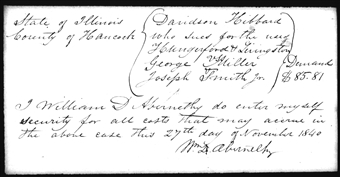 State of Illinois
County of Hancock
Davidson Hibbard
who sues for the use of
Hungerford & Livingston
vs
George Miller
Joseph Smith Jr
Demand
$85.81
I William D. Abernethy do enter myself
security for all costs that may accrue in
the above case this 27th day of November 1840
Wm D Abernethy